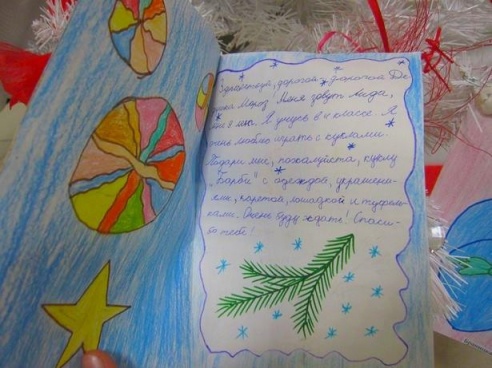 Здравствуй, дорогой дорогой Де
душка Мороз. Меня зовут Лида,
мне 9 лет. Я учусь в 4 классе. Я
очень люблю играть с куклами.
Подари мне, пожалуйста, куклу
"Барби" с одеждой, украшени-
ями, каретой, лошадкой и туфель-
ками. Очень буду ждать! Спаси-
бо тебе!